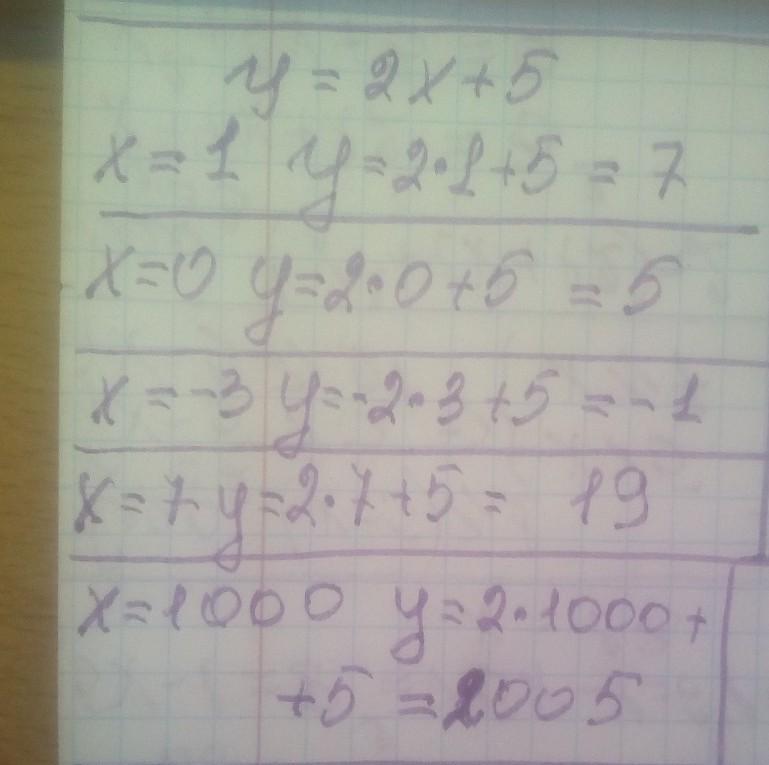 y = 2x + 5
x = 1 y = 2·1 + 5 = 7
x = 0 y = 2·0 + 5 = 5
x = -3 y = -2·3 + 5 = -1
x = 7 y = 2·7 + 5 = 19
x = 1000 y = 2·1000 +
+ 5 = 2005